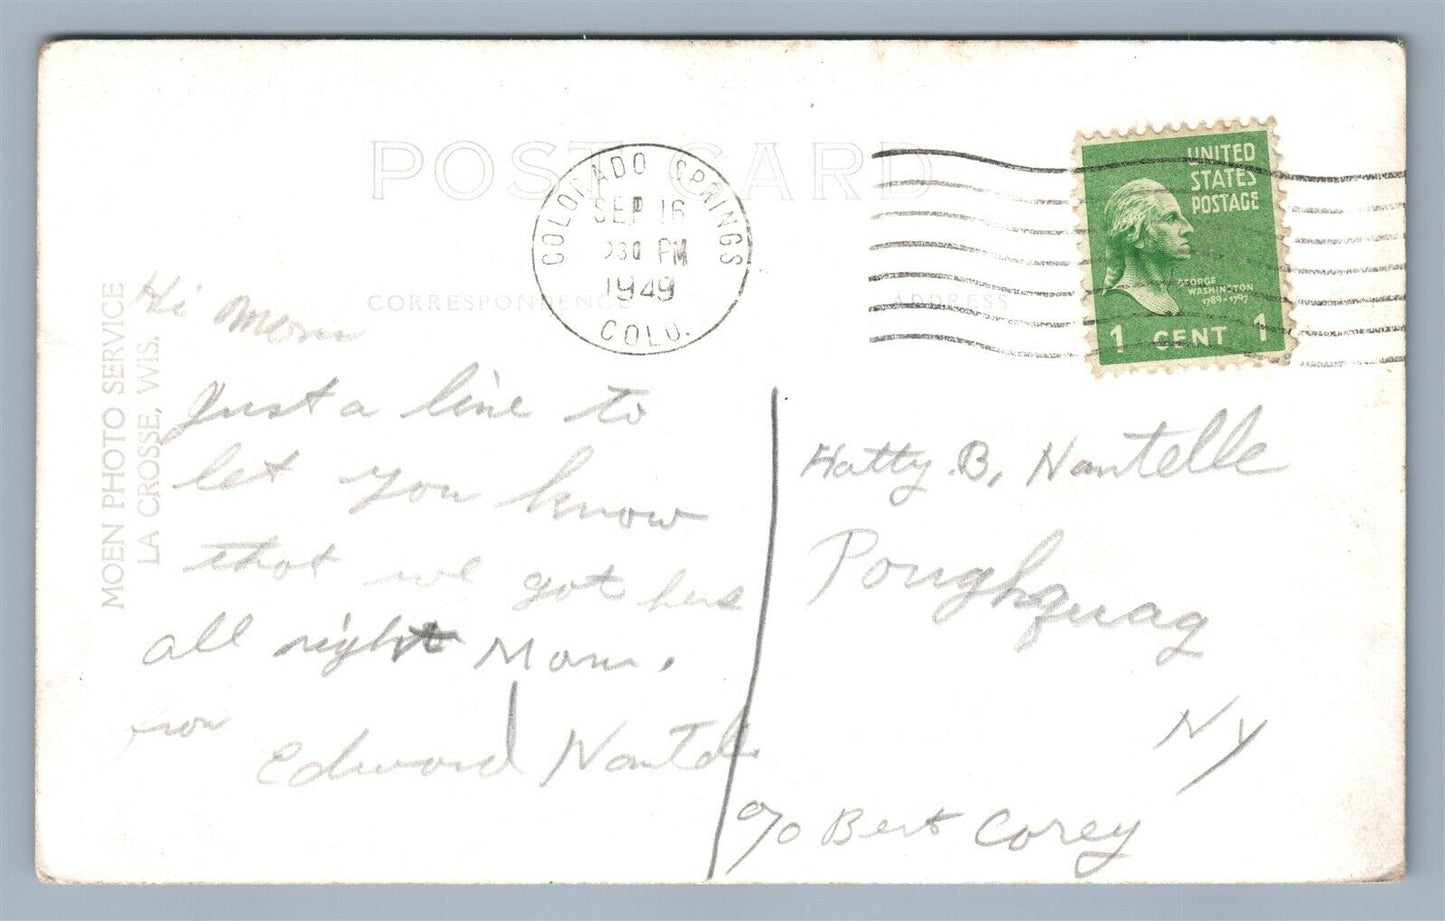 POST CARD
COLORADO SPRINGS
SEP 16
30 PM
1949
COLO.
UNITED
STATES
POSTAGE
GEORGE
WASHINGTON
1789-1797
1 CENT 1
CORRESPONDENCE
ADDRESS
MOEN PHOTO SERVICE
LA CROSSE, WIS.
Hi Mom
Just a line to
let you know
that we got here
all right Mom.
from
Edward Nantelle
Hatty B. Nantelle
Poughquag
NY
c/o Bert Corey